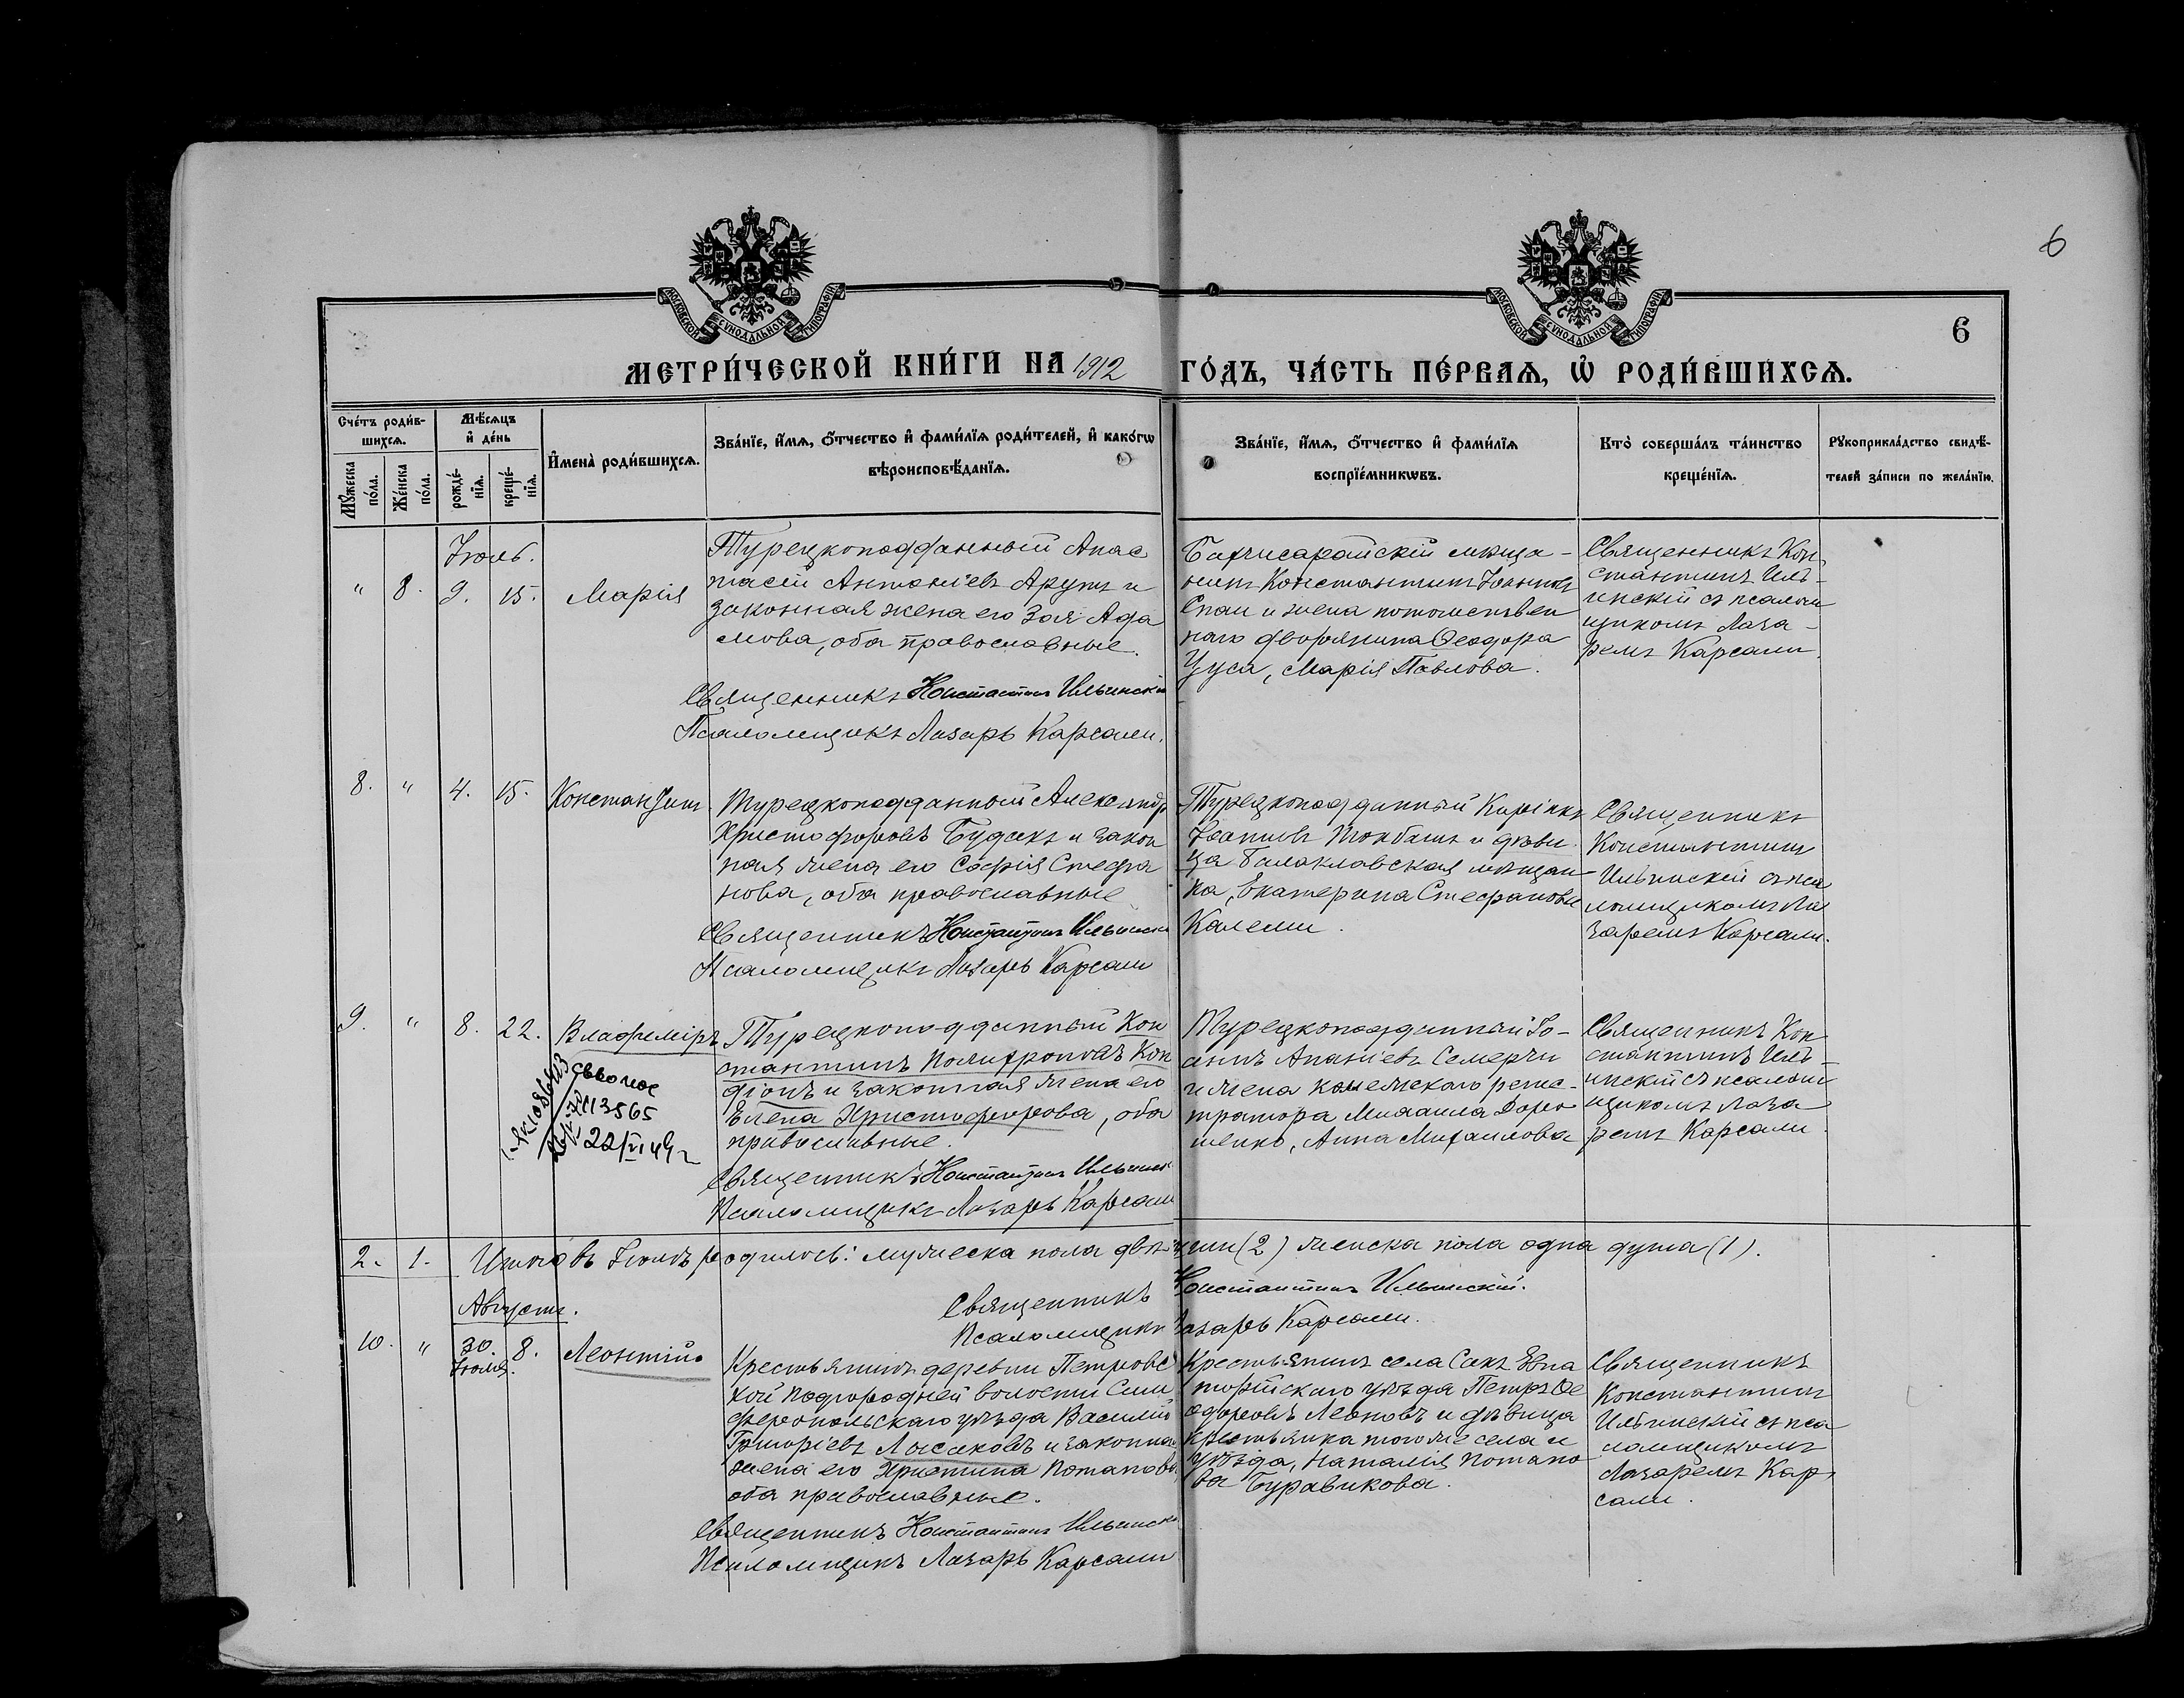 6
МОСКОВСКОЙ СУНОДАЛЬНОЙ ТИПОГРАФІИ
МОСКОВСКОЙ СУНОДАЛЬНОЙ ТИПОГРАФІИ
6
МЕТРИ́ЧЕСКОЙ КНИ́ГИ НА 1912 ГО́ДЪ, ЧА́СТЬ ПЕ́РВАѦ, Ѡ҆ РОДИ́ВШИХСѦ.
Сче́тъ роди́в-
шихсѧ.
Мꙋ́жеска по́ла.
Же́нска по́ла.
Мѣ́сѧцъ
и҆ де́нь
рожде́-
нїѧ.
креще́-
нїѧ.
И҆мена̀ роди́вшихсѧ.
Зва́нїе, и҆́мѧ, ѻ҆́тчество и҆ фами́лїѧ роди́телей, и҆ како́гѡ
вѣроисповѣ́данїѧ.
Зва́нїе, и҆́мѧ, ѻ҆́тчество и҆ фами́лїѧ
воспрїе́мникѡвъ.
Кто̀ соверша́лъ та́инство
креще́нїѧ.
Рꙋкоприкла́дство свидѣ́-
телей за́писи по жела́нїю.
Іюль.
" 8. 9. 15. Марія
Турецкоподданный Анас
тасій Антоніевъ Арутъ и
законная жена его Зоя Ада
мова, оба православные.
Священникъ Константинъ Ильинскій
Псаломщикъ Лазарь Карсали.
Бахчисарайскій мѣща-
нинъ Константинъ Іоанновъ
Спаи и жена потомствен
наго дворянина Ѳеодора
Цуса, Марія Павлова.
Священникъ Кон
стантинъ Иль-
инскій съ псалом
щикомъ Лаза-
ремъ Карсали.
8. " 4. 15. Константинъ
Турецкоподданный Александръ
Христофоровъ Будакъ и закон
ная жена его Софія Стефа
нова, оба православные
Священникъ Константинъ Ильинскі
Псаломщикъ Лазарь Карсали
Турецкоподданный Киріакъ
Іоанновъ Токбашъ и дѣви
ца Балаклавская мѣщан-
ка, Екатерина Стефанова
Калеми.
Священникъ
Константинъ
Ильинскій съ пса
ломщикомъ Ла
заремъ Карсали.
9. " 8. 22. Владиміръ
13565
22/VI 49 г
Турецкоподданный Кон
стантинъ Полихроновъ Кон
діонъ и законная жена его
Елена Христофорова, оба
православные.
Священникъ Константинъ Ильинск
Псаломщикъ Лазарь Карсали
Турецкоподданный Іо-
аннъ Ананіевъ Семерчи
и жена коллежскаго регис-
тратора Михаила Доро
шенко, Анна Михаилова
Священникъ Кон
стантинъ Иль-
инскій съ псалом
щикомъ Лаза
ремъ Карсали.
2. 1. Итого въ Іюлѣ родилось: мужеска пола двѣ души (2) женска пола одна душа (1).
Священникъ Константинъ Ильинскій.
Псаломщикъ Лазарь Карсали.
Августъ.
10. " 30. Іюля. 8. Леонтій.
Крестьянинъ деревни Петровс
кой Подгородней волости Сим
феропольскаго уѣзда Василій
Григоріевъ Лысаковъ и законная
жена его Христина Потапова,
оба православные.
Священникъ Константинъ Ильинскі
Псаломщикъ Лазарь Карсали
Крестьянинъ села Сакъ Евпа
торійскаго уѣзда Петръ Ѳе
одоровъ Леоновъ и дѣвица
крестьянка того же села и
уѣзда, Наталія Потапо
ва Буравикова.
Священникъ
Константинъ
Ильинскій съ пса
ломщикомъ
Лазаремъ Кар
сали.